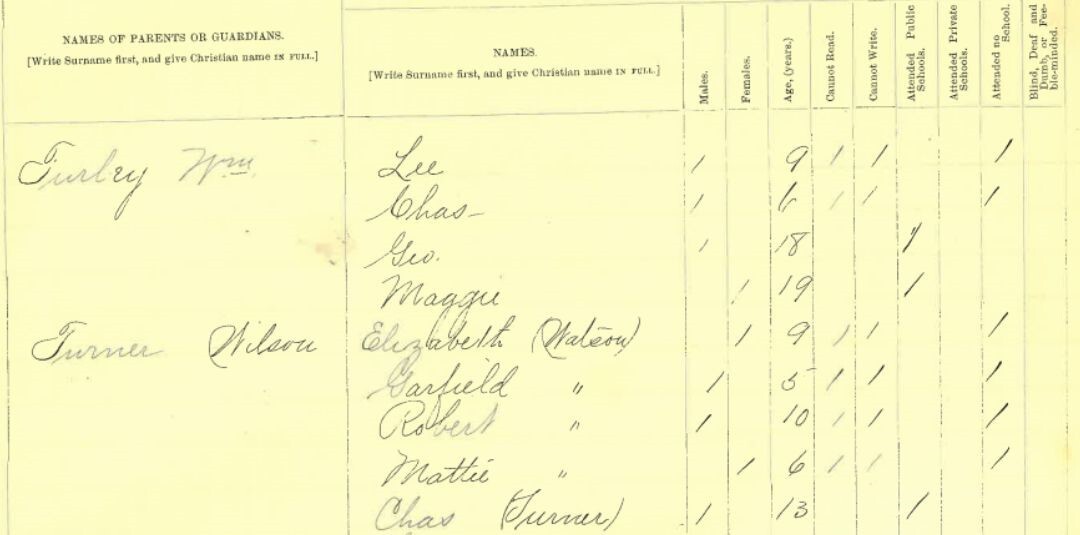 NAMES OF PARENTS OR GUARDIANS.
[Write Surname first, and give Christian name IN FULL.]
NAMES.
[Write Surname first, and give Christian name IN FULL.]
Males.
Females.
Age, (years.)
Cannot Read.
Cannot Write.
Attended Public Schools.
Attended Private Schools.
Attended no School.
Blind, Deaf and Dumb, or Feeble-minded.
Turley Wm. Lee 1 9 1 1 1
Chas- 1 6 1 1 1
Geo. 1 18 1
Maggie 1 19 1
Turner Wilson Elizabeth (Watson) 1 9 1 1 1
Garfield " 1 5 1 1 1
Robert " 1 10 1 1 1
Mattie " 1 6 1 1 1
Chas (Turner) 1 13 1